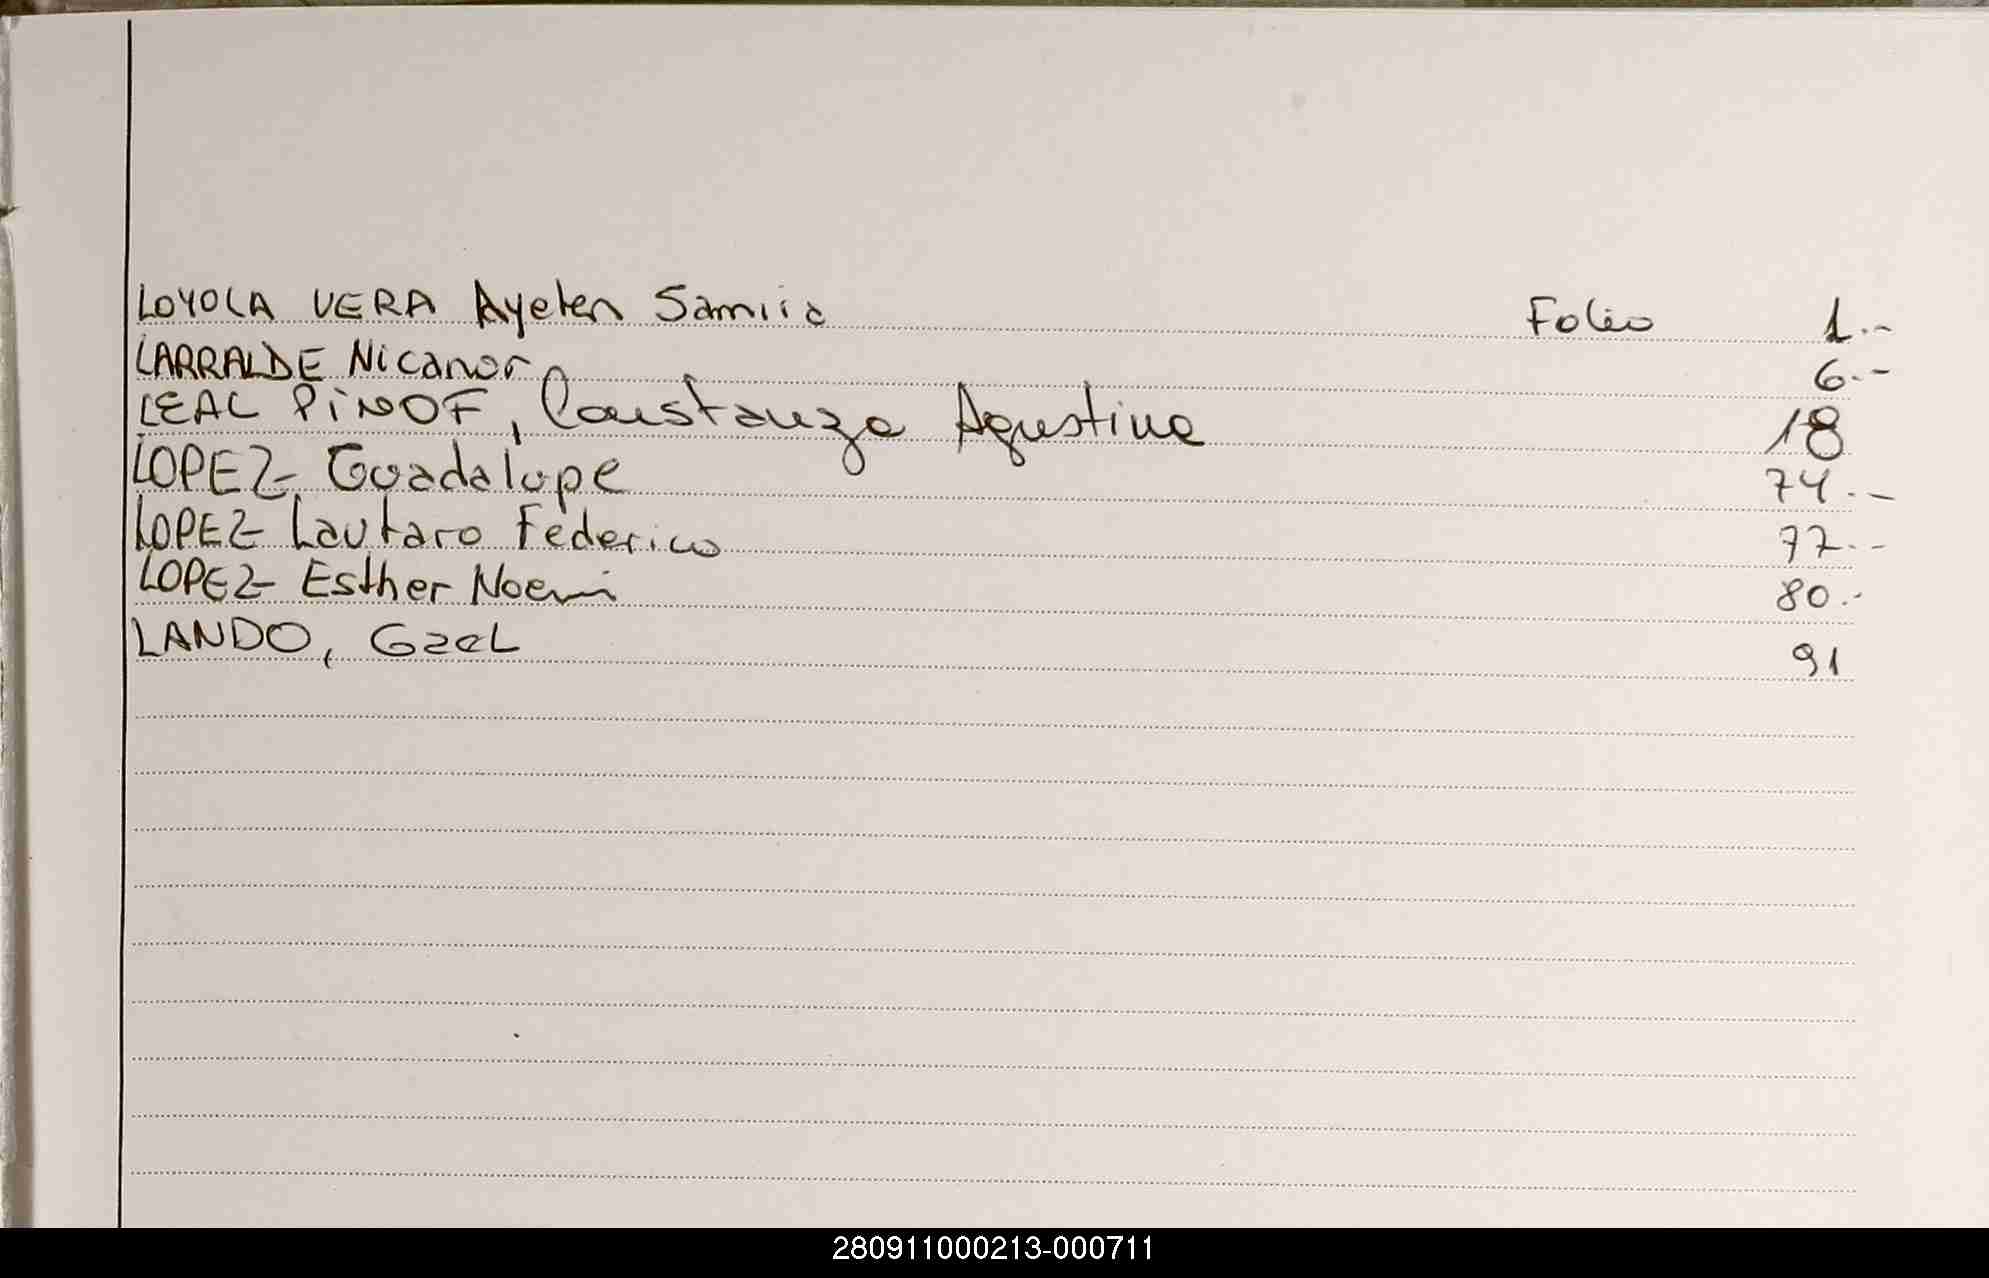 LOYOLA VERA Ayelen Samira Folio 1.-
LARRALDE Nicanor 6.-
LEAL PINOF, Constanza Agustina 18
LOPEZ Guadalupe 74.-
LOPEZ Lautaro Federico 77.-
LOPEZ Esther Noemi 80.-
LANDO, Gael 91
280911000213-000711